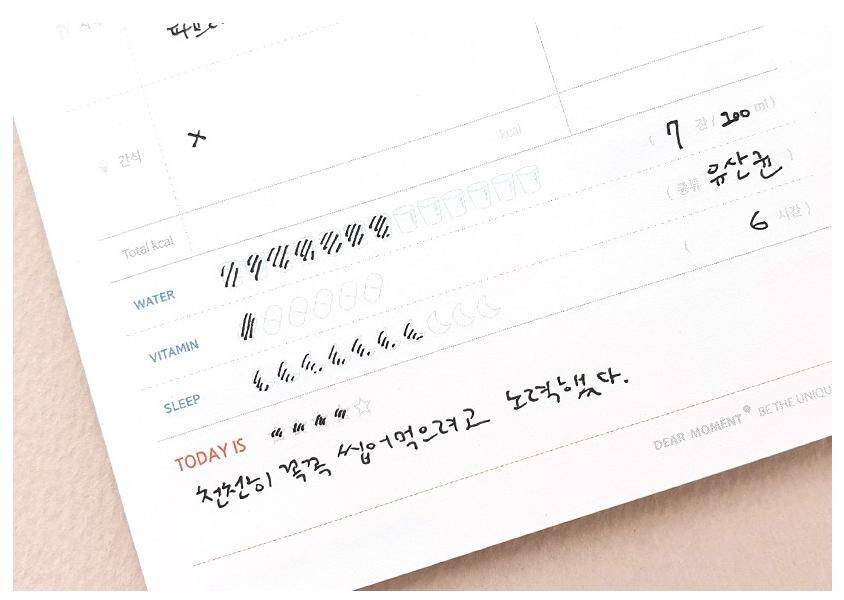 간식 X
kcal
Total kcal
WATER ( 7 잔 / 200 ml )
VITAMIN ( 종류 유산균 )
SLEEP ( 6 시간 )
TODAY IS
천천히 꼭꼭 씹어먹으려고 노력했다.
DEAR MOMENT BE THE UNIQU